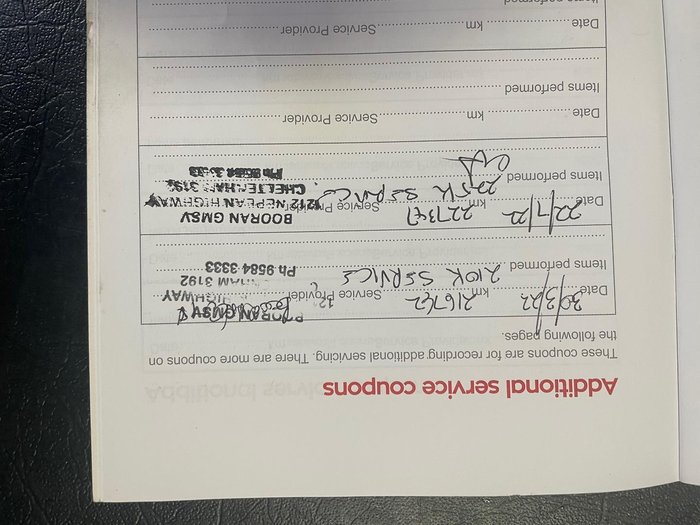 Additional service coupons
These coupons are for recording additional servicing. There are more coupons on
the following pages.
Date 30/3/22 km 216742 Service Provider
BOORAN GMSV
HIGHWAY
3192
Ph 9584 3333
Items performed 210K SERVICE
Date 22/7/22 km 227347 Service Provider
BOORAN GMSV
1212 NEPEAN HIGHWAY
CHELTENHAM 319
Items performed 225K SERVICE
Date km Service Provider
Items performed
Date km Service Provider
Items performed